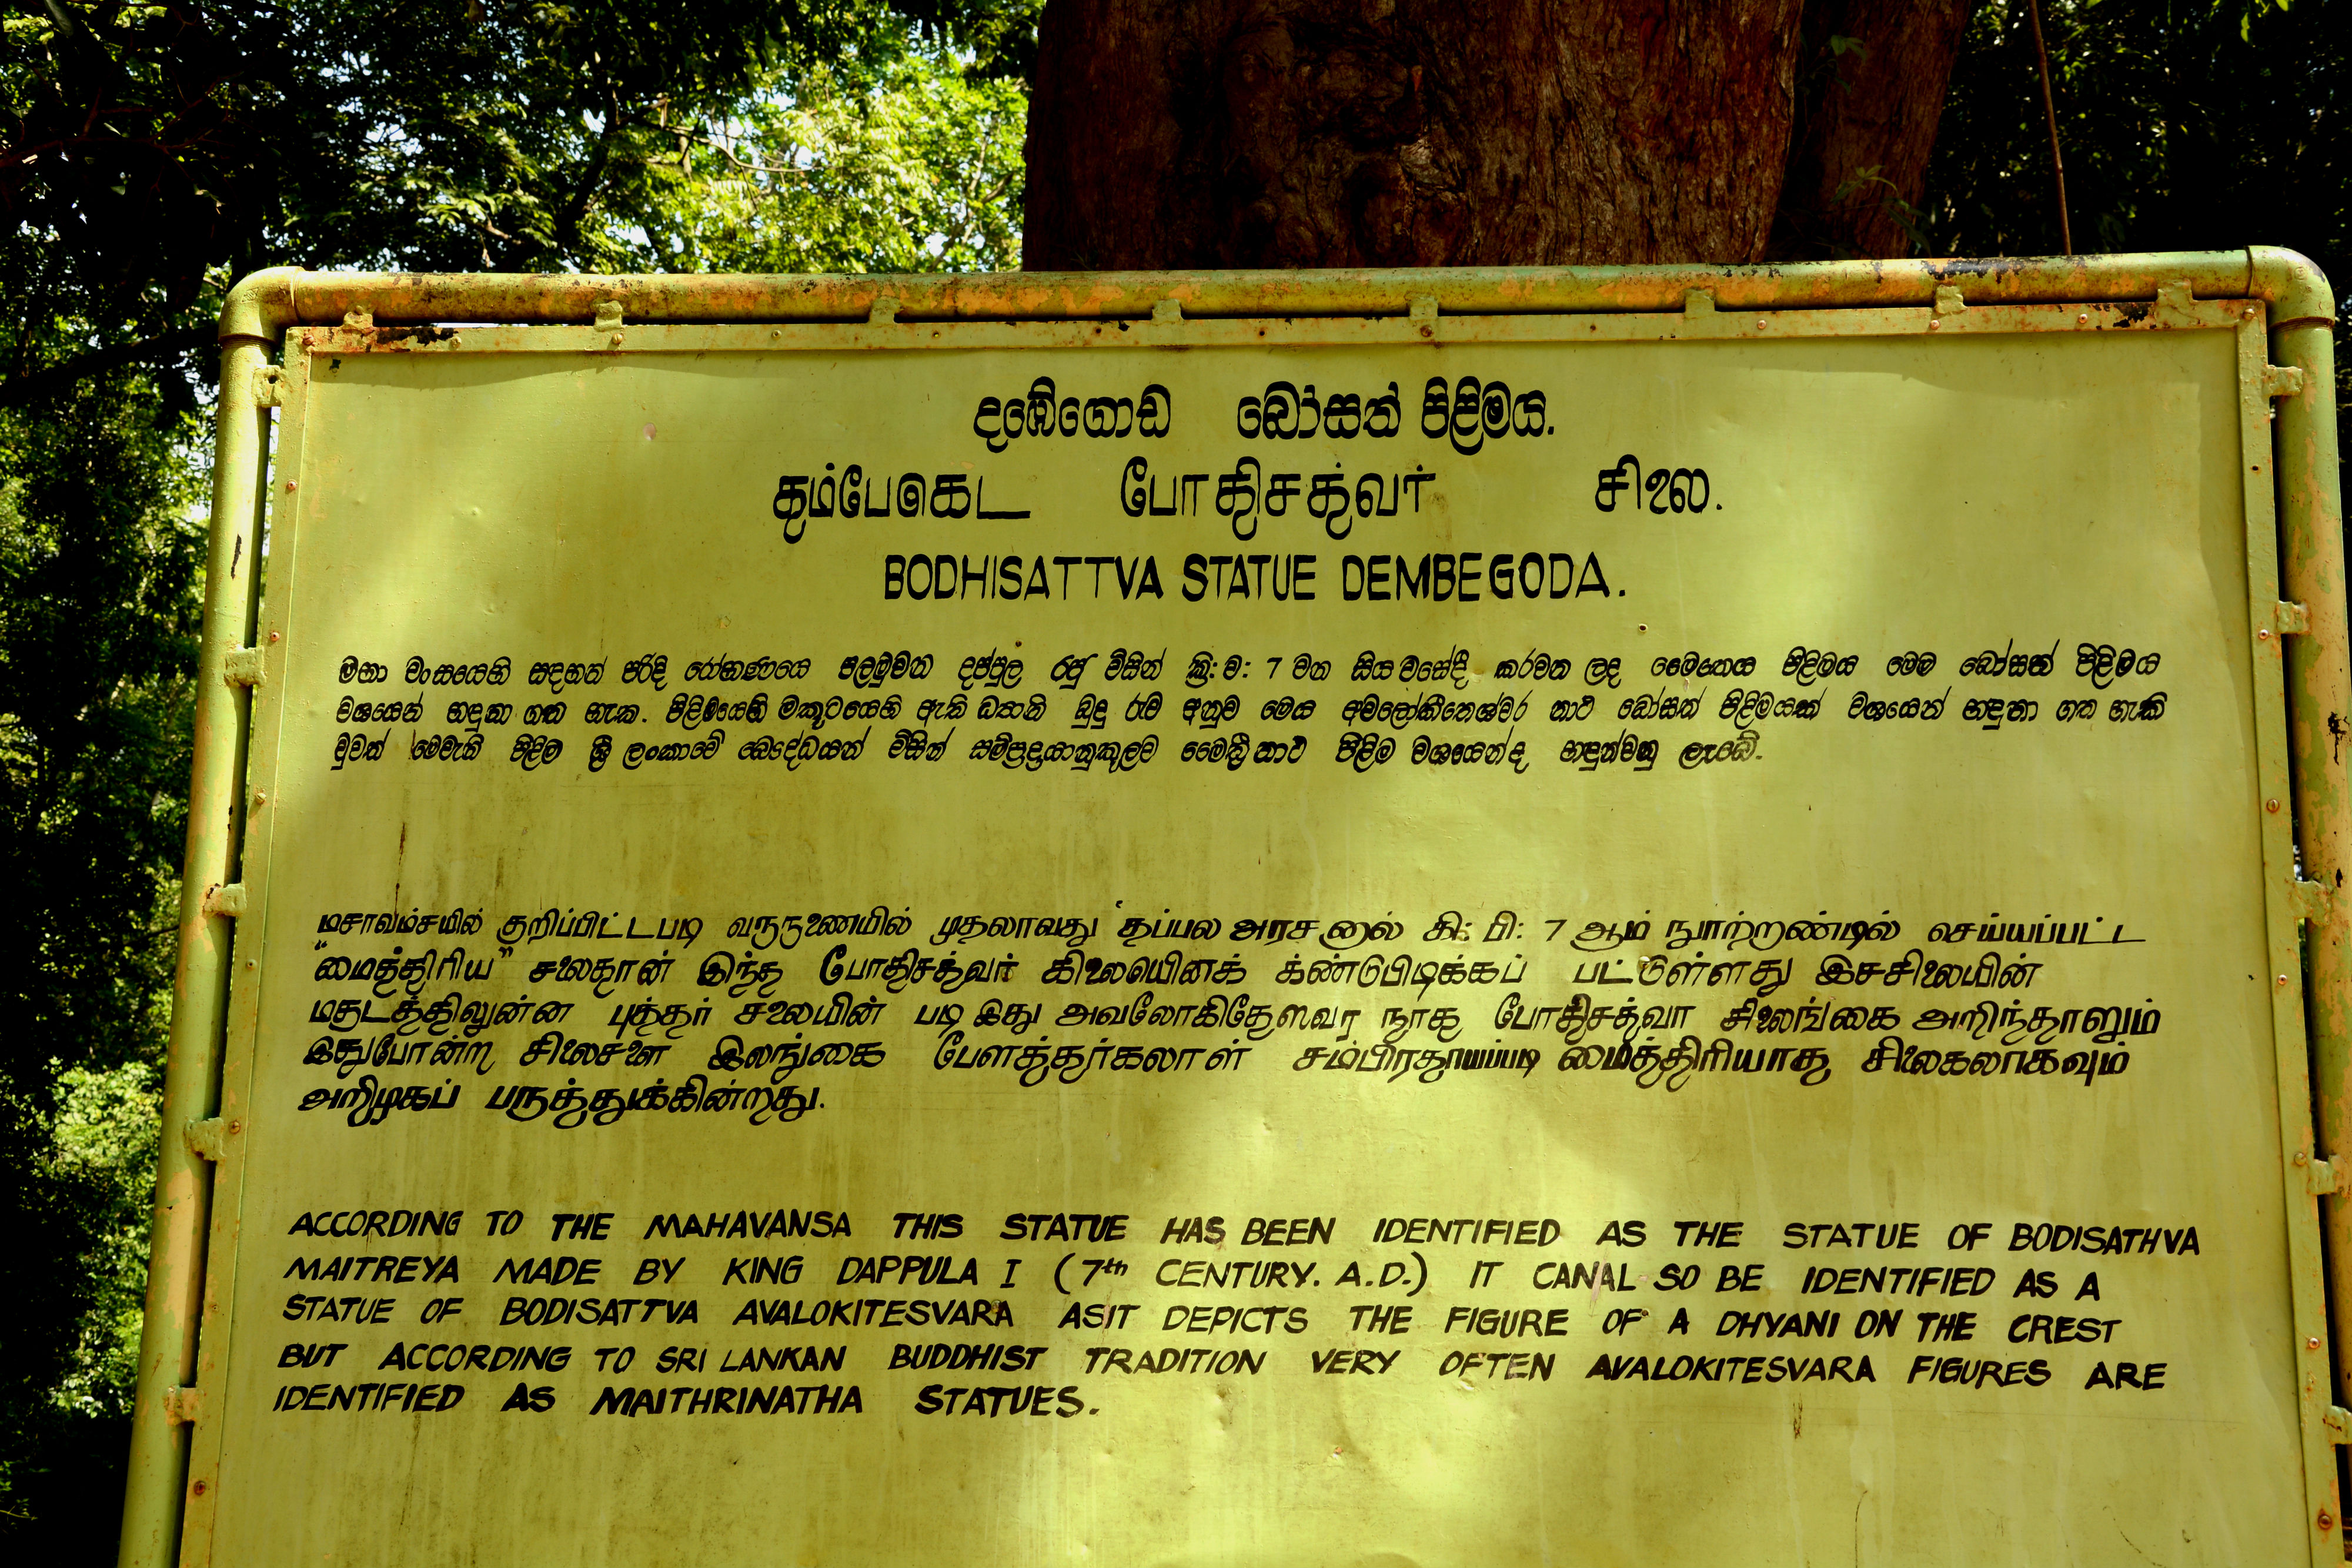 දඹේගොඩ බෝසත් පිළිමය.
தம்பேகெட போதிசத்வர் சிலை.
BODHISATTVA STATUE DEMBEGODA.
මහා වංසයෙහි සඳහන් පරිදි රෝහණයෙ පලමුවන දප්පුල රජු විසින් ක්‍රි: ව: 7 වන සියවසේදී කරවන ලද මෛත්‍රෙය පිළිමය මෙම බෝසත් පිළිමය
වශයෙන් හඳුනා ගත හැක. පිළිමයෙහි මකුටයෙහි ඇති ධ්‍යානි බුදු රුව අනුව මෙය අවලෝකිතෙශ්වර නාථ බෝසත් පිළිමයක් වශයෙන් හඳුනා ගත හැකි
වුවත් මෙවැනි පිළිම ශ්‍රී ලංකාවේ බෞද්ධයන් විසින් සම්ප්‍රදායානුකූලව මෛත්‍රී නාථ පිළිම වශයෙන්ද හඳුන්වනු ලැබේ.
மசாவம்சயில் குறிப்பிட்டபடி வருருணையில் முதலாவது தப்பல அரசனால் கி: பி: 7 ஆம் நூாற்றண்டில் செய்யப்பட்ட
"மைத்திரிய" சலைதான் இந்த போதிசத்வர் கிலையெனக் க்ண்டுபிடிக்கப் பட்டுள்ளது இச்சிலையின்
மகுடத்திலுன்ன புத்தர் சலையின் படி இது அவலோகிதேஸவர நாத போதிசத்வா சிலைங்கை அறிந்தாலும்
இதுபோன்ற சிலைசளை இலங்கை பேளத்தர்கலாள் சம்பிரதாயப்படி மைத்திரியாத சிலைகலாகவும்
அறிழகப் பருத்துக்கின்றது.
ACCORDING TO THE MAHAVANSA THIS STATUE HAS BEEN IDENTIFIED AS THE STATUE OF BODISATHVA
MAITREYA MADE BY KING DAPPULA I (7th CENTURY. A.D.) IT CANAL SO BE IDENTIFIED AS A
STATUE OF BODISATTVA AVALOKITESVARA ASIT DEPICTS THE FIGURE OF A DHYANI ON THE CREST
BUT ACCORDING TO SRI LANKAN BUDDHIST TRADITION VERY OFTEN AVALOKITESVARA FIGURES ARE
IDENTIFIED AS MAITHRINATHA STATUES.